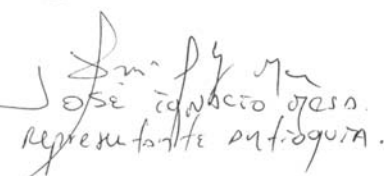 JOSE IGNACIO MESA.
Representante Antioquia.